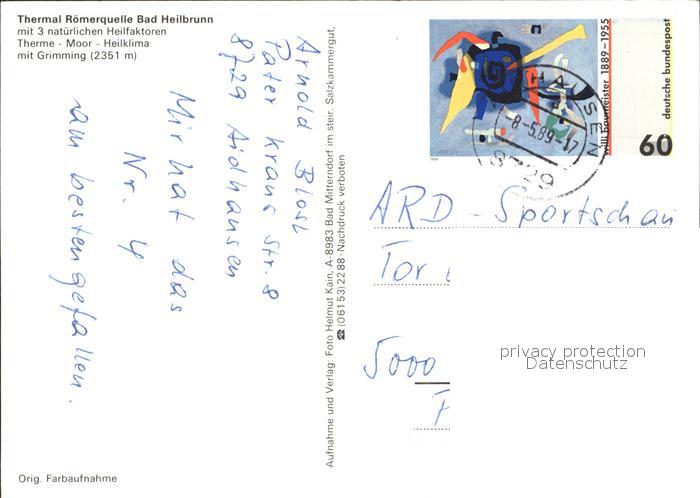 Thermal Römerquelle Bad Heilbrunn
mit 3 natürlichen Heilfaktoren
Therme - Moor - Heilklima
mit Grimming (2351 m)
Arnold Blösl
Pater Kraus Str. 8
8729 Aidhausen
Mir hat das
Nr. 4
am besten gefallen.
Orig. Farbaufnahme
Aufnahme und Verlag: Foto Helmut Kain, A-8983 Bad Mitterndorf im steir. Salzkammergut,
☎ (06153) 2288 · Nachdruck verboten
willi baumeister 1889-1955
deutsche bundespost
60
-8.-5.89-17
8729
ARD - Sportschau
Tor
5000
privacy protection
Datenschutz